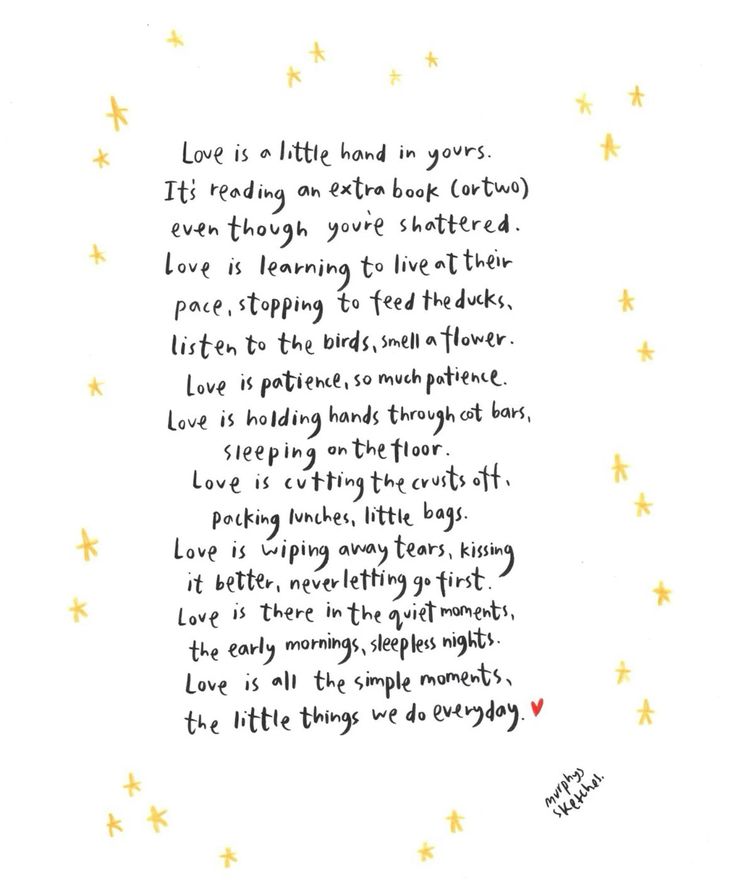 Love is a little hand in yours.
It's reading an extra book (or two)
even though you're shattered.
Love is learning to live at their
pace, stopping to feed the ducks,
listen to the birds, smell a flower.
Love is patience, so much patience.
Love is holding hands through cot bars,
sleeping on the floor.
Love is cutting the crusts off,
packing lunches, little bags.
Love is wiping away tears, kissing
it better, never letting go first.
Love is there in the quiet moments,
the early mornings, sleepless nights.
Love is all the simple moments,
the little things we do everyday.
murphys
sketches.